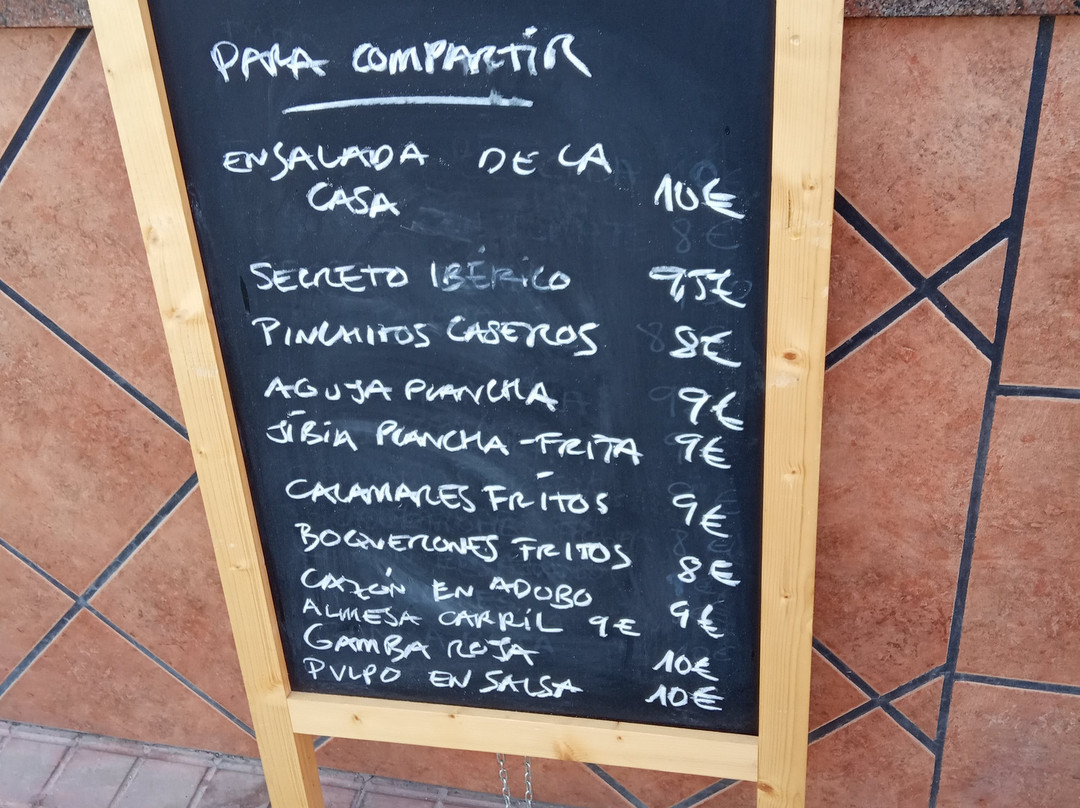 PARA COMPARTIR
ENSALADA DE LA
CASA 10€
SECRETO IBÉRICO 9,5€
PINCHITOS CASEROS 8€
AGUJA PLANCHA 9€
JIBIA PLANCHA-FRITA 9€
CALAMARES FRITOS 9€
BOQUERONES FRITOS 8€
CAZÓN EN ADOBO 9€
ALMEJA CARRIL 9€
GAMBA ROJA 10€
PULPO EN SALSA 10€